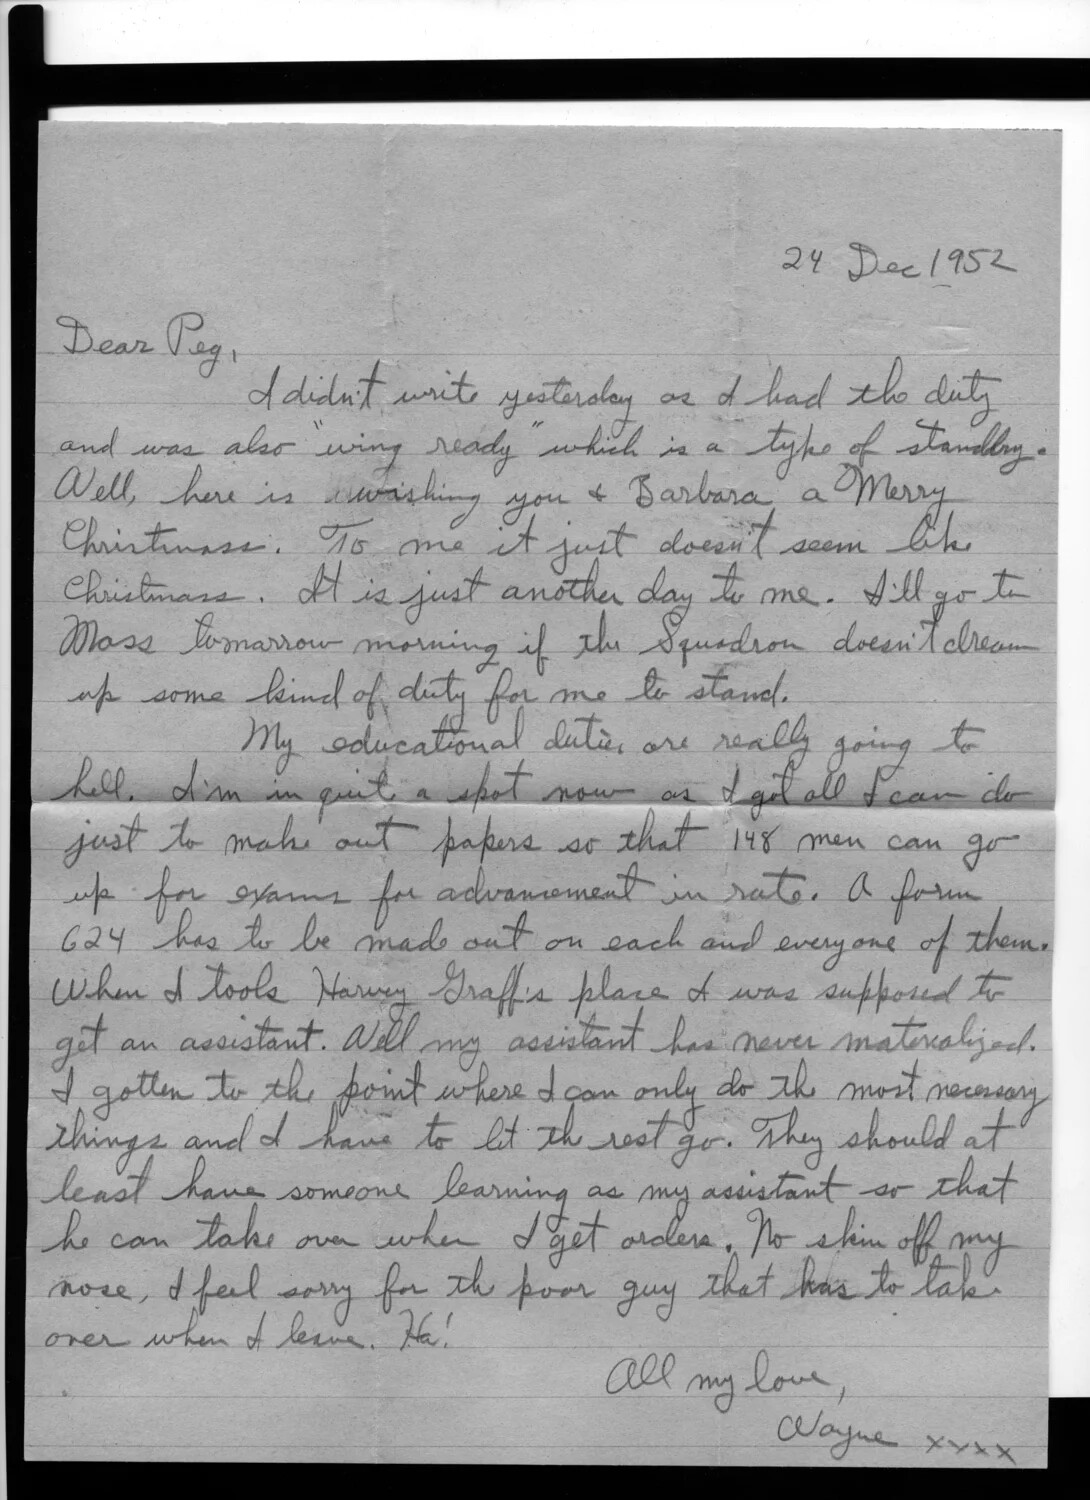 24 Dec 1952
Dear Peg,
I didn't write yesterday as I had the duty
and was also "wing ready" which is a type of standby.
Well, here is wishing you & Barbara a Merry
Christmass. To me it just doesn't seem like
Christmass. It is just another day to me. I'll go to
Mass tomarrow morning if the Squadron doesn't dream
up some kind of duty for me to stand.
My educational duties are really going to
hell. I'm in quite a spot now as I got all I can do
just to make out papers so that 148 men can go
up for exams for advancement in rate. A form
624 has to be made out on each and everyone of them.
When I took Harvey Graff's place I was supposed to
get an assistant. Well my assistant has never materealized.
I gotten to the point where I can only do the most necessary
things and I have to let the rest go. They should at
least have someone learning as my assistant so that
he can take over when I get orders. No skin off my
nose, I feel sorry for the poor guy that has to take
over when I leave. Ha!
All my love,
Wayne xxxx